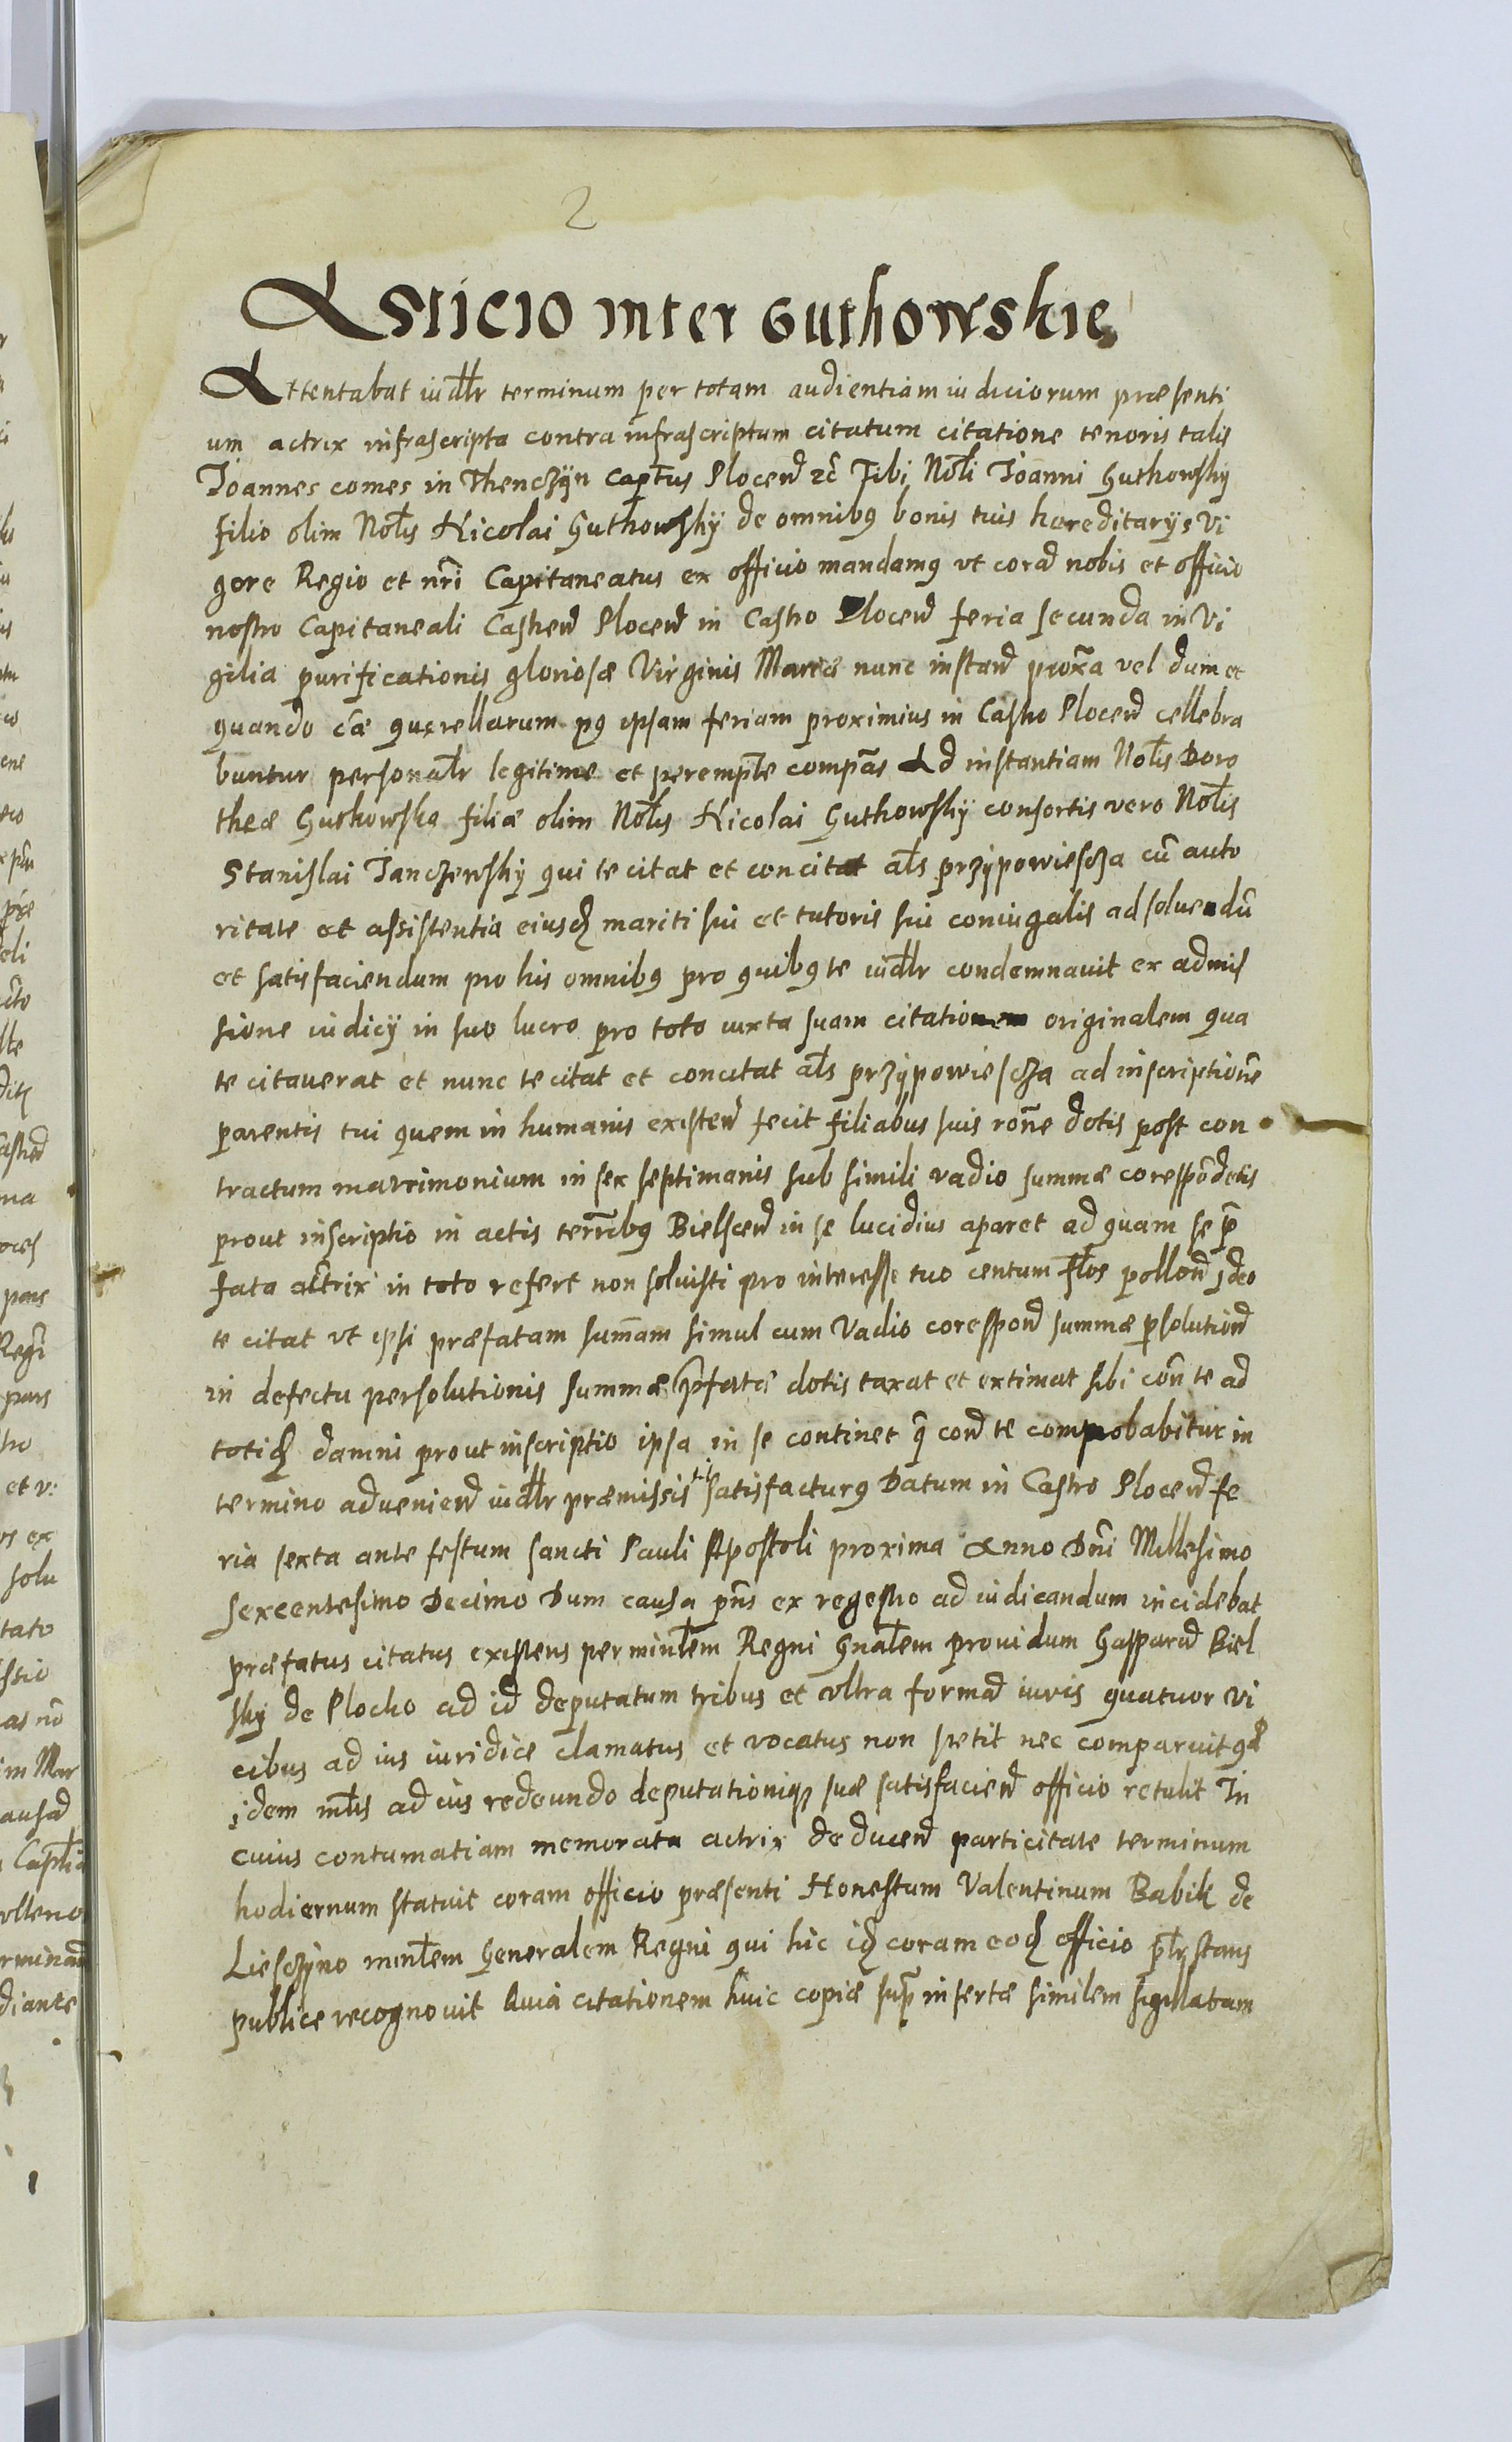 2
Asticio inter Guthowskie
Attentabat iudllr terminum per totam audientiam iudiciorum præsenti
um actrix infrascripta contra infrascriptum citatum citatione tenoris talis
Joannes comes in Thenczÿn Capt̃us Plocen̄ rc̃ Tibi Nobli Joanni Guthowskÿ
filio olim Noblis Nicolai Guthowskÿ de omnibꝰ bonis tuis hæreditarÿs Vi
gore Regio et nr̃i Capitaneatus ex officio mandamꝰ vt corā nobis et officio
nostro Capitaneali Castren̄ Plocen̄ in Castro Plocen̄ feria secunda in Vi
gilia purificationis gloriosæ Virginis Mariæ nunc instan̄ prox̃a vel dum et
quando c̃æ querellarum pꝰ ipsam feriam proximius in Castro Plocen̄ cellebra
buntur personalr legitime et perempt̃e comp̃as Ad instantiam Noblis Doro
theæ Guthowska filiæ olim Noblis Nicolai Guthowskÿ consortis vero Noblis
Stanislai Janczewskÿ qui te citat et concitat als przÿpowiescza cū auto
ritate et assistentia eiusd mariti sui et tutoris sui coniugalis ad soluendū
et satisfaciendum pro his omnibꝰ pro quibꝰ te iudllr condemnauit ex admis
sione iudicÿ in suo lucro pro toto iuxta suam citationem originalem qua
te citauerat et nunc te citat et concitat als przÿpowiescza ad inscriptionē
parentis tui quem in humanis existen̄ fecit filiabus suis rōne dotis post con
tractum matrimonium in sex septimanis sub simili vadio summæ corespōdētis
prout inscriptio in actis terr̃ibꝰ Bielscen̄ in se lucidius aparet ad quam se p̃
fata actrix in toto refert non soluisti pro interesse tuo centum flos pollon̄ ideo
te citat vt ipsi præfatam sum̃am simul cum Vadio corespon̄ summæ p̱solution̄
in defectu persolutionis summæ p̃fatæ dotis taxat et extimat sibi con̄ te ad
totid̃ damni prout inscriptio ipsa in se continet q̃ con̄ te comprobabitur in
termino aduenien̄ iudllr præmissis satisfacturꝰ Datum in Castro Plocen̄ fe
ria sexta ante festum sancti Pauli Apostoli proxima Anno Dn̄i Millesimo
sexcentesimo Decimo Dum causa pn̄s ex regestro ad iudicandum incidebat
præfatus citatus existens per minlem Regni Gnalem prouidum Gasparū Biel
skÿ de Plocko ad id deputatum tribus et vltra formā iuris quatuor vi
cibus ad ius iuridice clamatus et vocatus non stetit nec comparuit qd̃
idem mlis ad ius redeundo deputationiqꝫ suæ satisfacien̄ officio retulit In
cuius contumatiam memorata actrix deducen̄ particitate terminum
hodiernum statuit coram officio præsenti Honestum Valentinum Babik de
Liesczÿno minlem Generalem Regni qui hic id̃ coram eod̃ officio plr̃ stans
publice recognouit Quia citationem huic copiæ sup̃ insertæ similem sigillatam